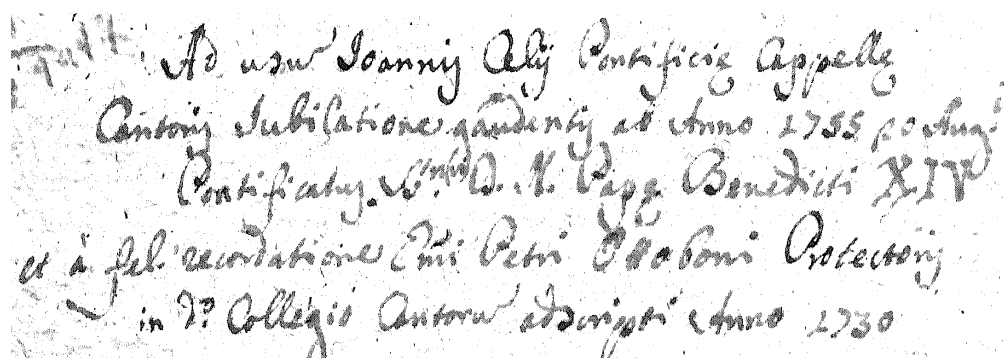 Ad usũ Joannis Celij Pontificię Cappellę
Cantoris Jubilatione gaudentis ab Anno 1755 po Augti
Pontificatus SSmi D. N. Papę Benedicti XIV
et à fel: recordatione Emĩ Petri Ottoboni Protectoris
in do Collegio Cantorũ adscripti Anno 1730